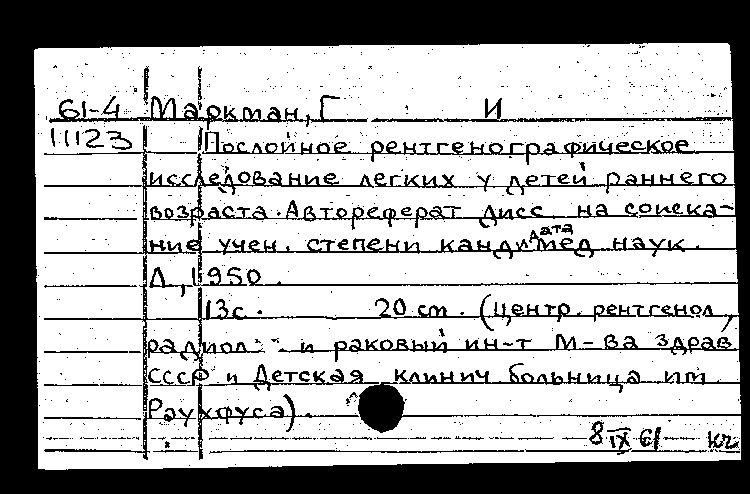 61-4 Маркман, Г И
11123 Послойное рентгенографическое
исследование легких у детей раннего
возраста. Автореферат дисс. на соиска-
ние учен. степени кандидата мед наук.
Л., 1950.
13с. 20 cm. (Центр. рентгенол,
радиол. и раковый ин-т М-ва здрав
СССР и Детская клинич больница им
Раухфуса).
8 IX 61 кч